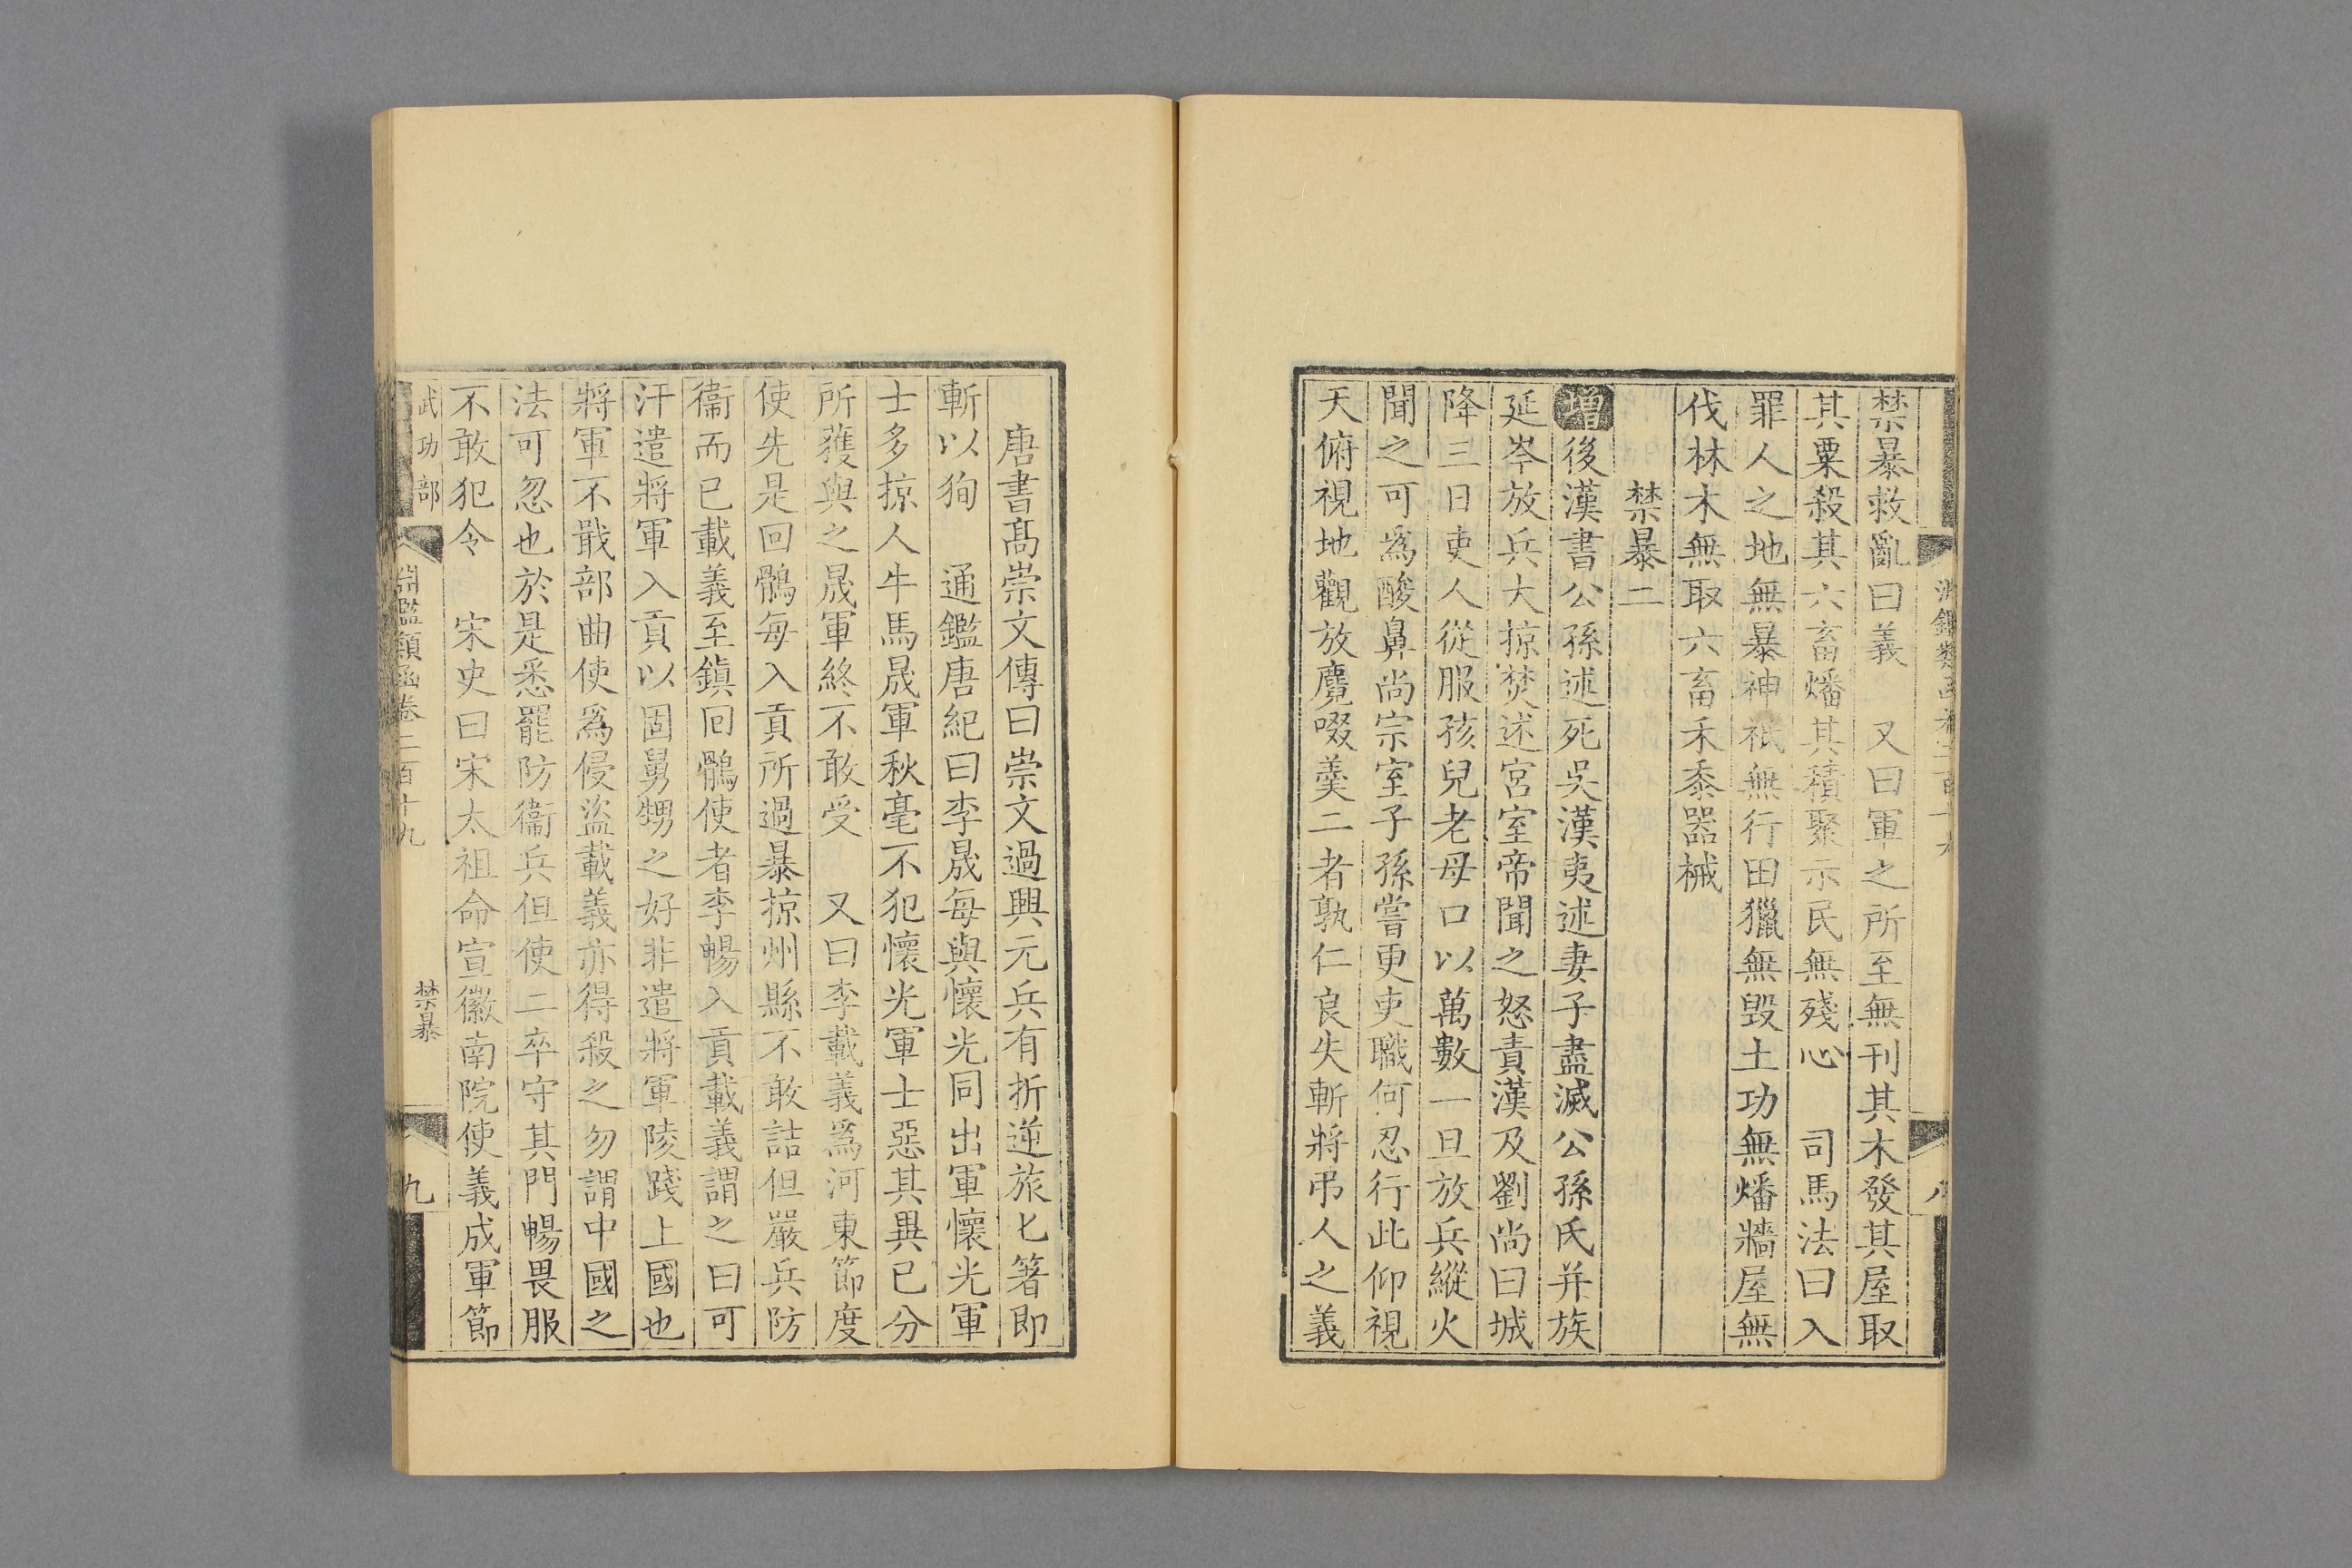 禁暴救亂曰義　又曰軍之所至無刊其木發其屋取
其粟殺其六畜燔其積聚示民無殘心　司馬法曰入
罪人之地無暴神祇無行田獵無毀土功無燔牆屋無
伐林木無取六畜禾黍器械
禁暴二
增後漢書公孫述死吳漢夷述妻子盡滅公孫氏并族
延岑放兵大掠焚述宮室帝聞之怒責漢及劉尚曰城
降三日吏人從服孩兒老母口以萬數一旦放兵縱火
聞之可為酸鼻尚宗室子孫嘗更吏職何忍行此仰視
天俯視地觀放麑啜羹二者孰仁良失斬將弔人之義
唐書高崇文傳曰崇文過興元兵有折逆旅匕箸即
斬以狥　通鑑唐紀曰李晟每與懷光同出軍懷光軍
士多掠人牛馬晟軍秋毫不犯懷光軍士惡其異已分
所獲與之晟軍終不敢受　又曰李載義爲河東節度
使先是回鶻每入貢所過暴掠州縣不敢詰但嚴兵防
衞而已載義至鎮回鶻使者李暢入貢載義謂之曰可
汗遣將軍入貢以固舅甥之好非遣將軍陵踐上國也
將軍不戢部曲使爲侵盜載義亦得殺之勿謂中國之
法可忽也於是悉罷防衞兵但使二卒守其門暢畏服
不敢犯令　宋史曰宋太祖命宣徽南院使義成軍節
武功部　淵鑑類函卷二百十九　禁暴　九